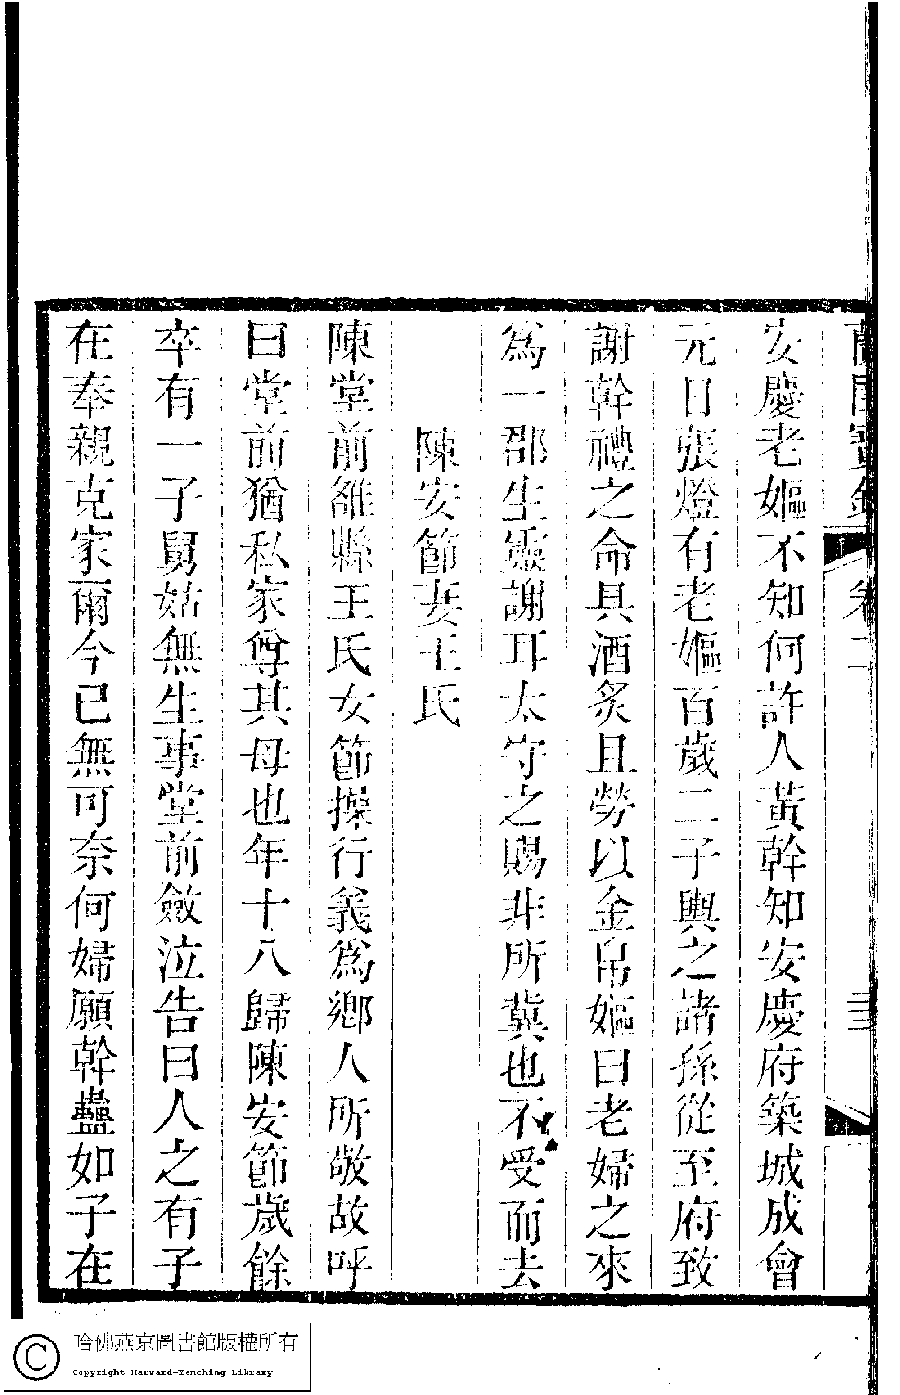 安慶老嫗不知何許人黃幹知安慶府築城成會
元日張燈有老嫗百歲二子輿之諸孫從至府致
謝幹禮之命具酒炙且勞以金帛嫗曰老婦之來
為一郡生靈謝耳太守之賜非所冀也不受而去
陳安節妻王氏
陳堂前雒縣王氏女節操行義為鄉人所敬故呼
曰堂前猶私家尊其母也年十八歸陳安節歲餘
卒有一子舅姑無生事堂前斂泣告曰人之有子
在奉親克家爾今已無可奈何婦願幹蠱如子在
卷二
哈佛燕京圖書館版權所有
Copyright Harvard-Yenching Library